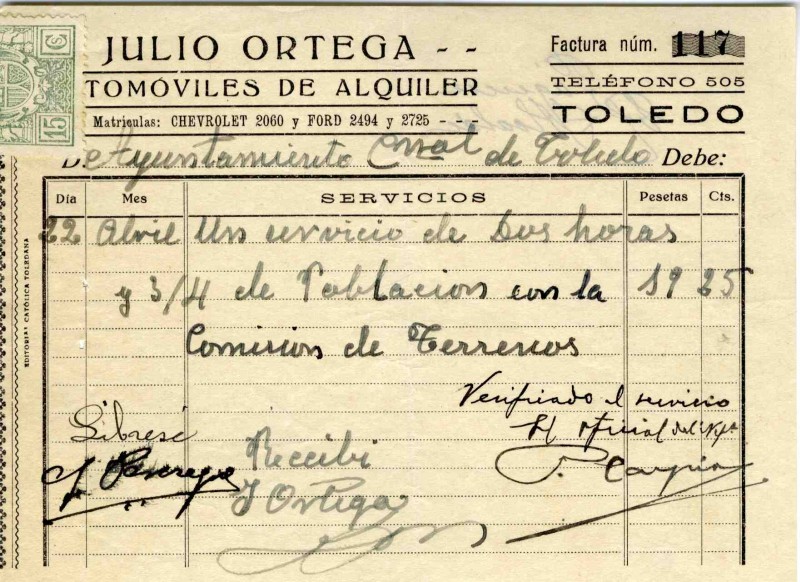 JULIO ORTEGA - -
TOMÓVILES DE ALQUILER
Matriculas: CHEVROLET 2060 y FORD 2494 y 2725 - - -
Factura núm. 117
TELÉFONO 505
TOLEDO
15 Cs
D Ayuntamiento de Toledo Debe:
Día Mes SERVICIOS Pesetas Cts.
22 Abril Un servicio de Dos horas
y 3/4 de Poblacion con la 19 25
Comision de Terrenos
Verifriado el servicio
El oficial
Líbrese
Recibi
J Ortega
EDITORIAL CATÓLICA TOLEDANA